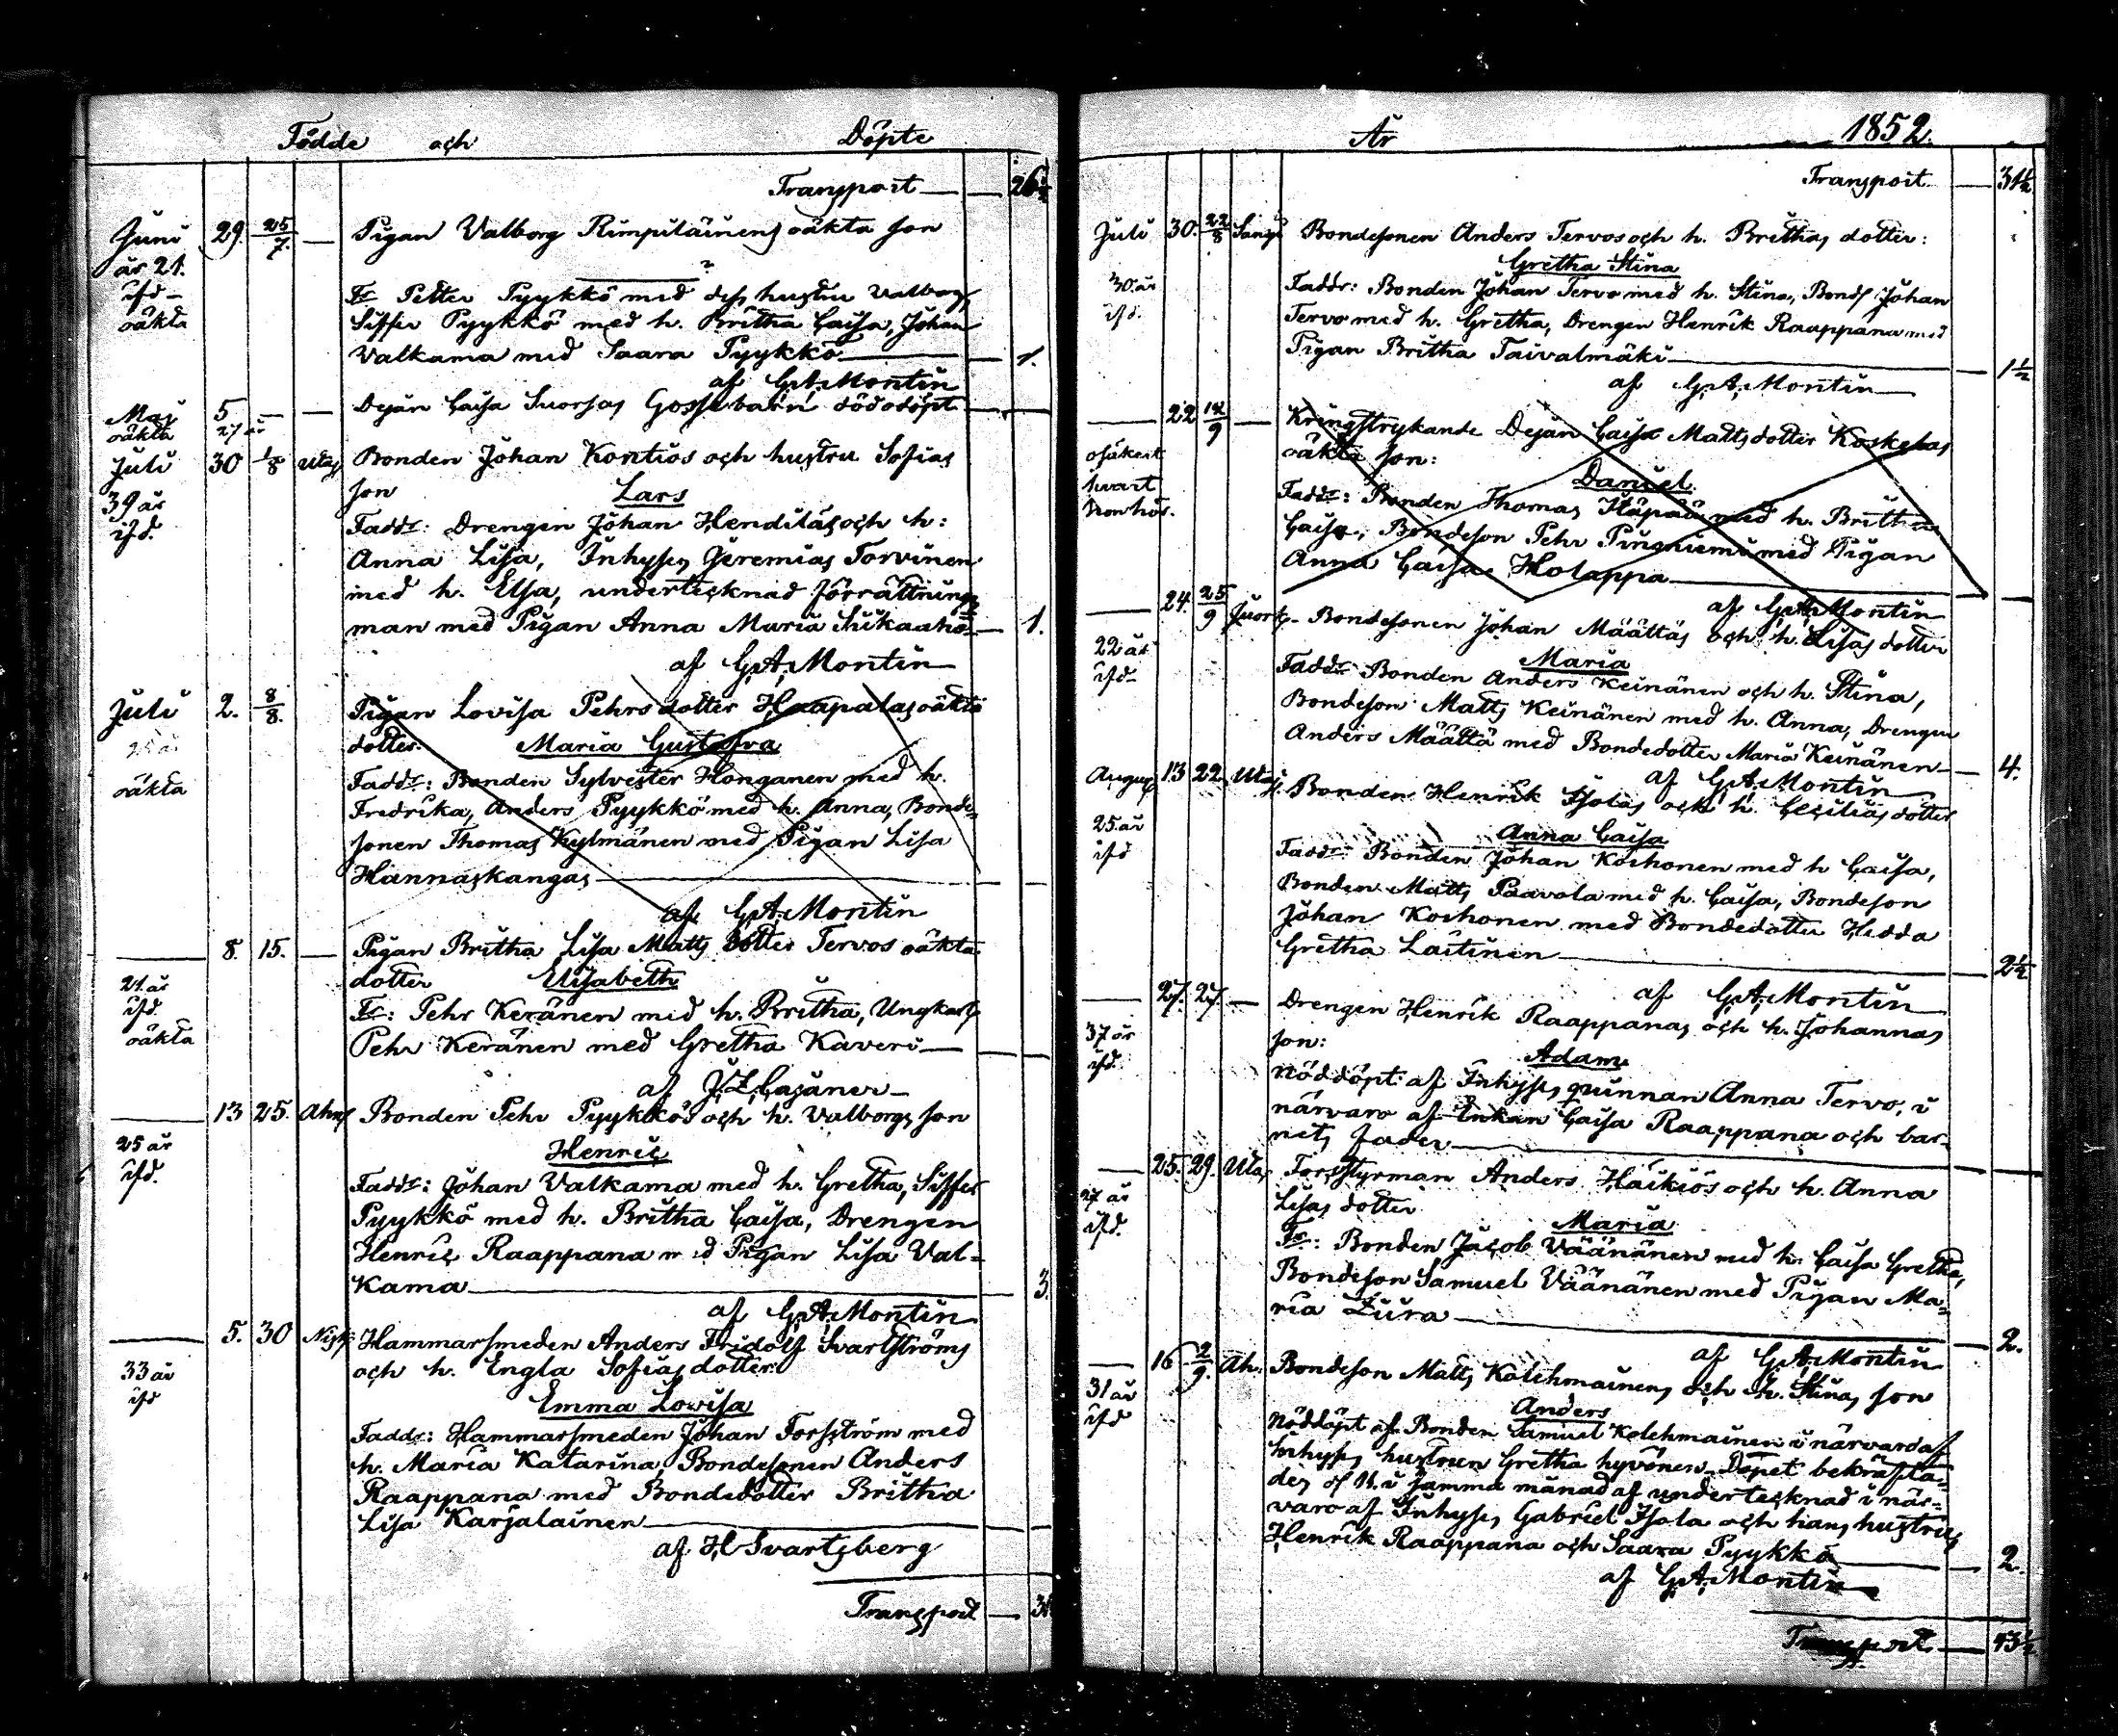 Födde och Döpte
Transport — 26½
Juni 29. 25/7. — Pigan Valborg Rimpiläinens oäkta son
år 21.
ifd —
oäkta
Fr Petter Pyykkö med dess hustru Valborg,
Siffer Pyykkö med h. Britha Caisa, Johan
Valkama med Saara Pyykkö — 1.
af G.A. Montin
Maj 5 — — Dejan Caisa Suorsas Gossebarn dödödöpt —
oäkta 27 år
Juli 30 1/8 Utaj Bonden Johan Kontios och hustru Sofias
39 år son Lars
ifd. Faddr: Drengen Johan Hendilä och h:
Anna Lisa, Inhyses Jeremias Torvinen
med h. Elsa, undertecknad förrättnings
man med Pigan Anna Maria Siikaaho — 1.
af G.A. Montin
Juli 2. 8/8. Pigan Lovisa Pehrsdotter Haapalas oäkta
25 år dotter: Maria Gustafva
oäkta Faddr: Bonden Sylvester Honganen med h.
Fredrika, Anders Pyykkö med h. Anna, Bonde-
sonen Thomas Kylmänen med Pigan Lisa
Hannaskangas —
af G.A. Montin
— 8. 15. — Pigan Britha Lisa Matts dotter Tervos oäkta
21 år dotter Elisabeth
ifd. Fr: Pehr Keränen med h. Britha, Ungkarls
oäkta Pehr Keränen med Gretha Kaveri —
af J.Z. Cajaner —
— 13 25. Ahns Bonden Pehr Pyykkös och h. Valborgs son
25 år Henric
ifd. Faddr: Johan Valkama med h. Gretha, Siffer
Pyykkö med h. Britha Caisa, Drengen
Henric Raappana med Pigan Lisa Val-
kama — 3.
af G.A. Montin
— 5. 30 Nisk Hammarsmeden Anders Fridolf Svartströms
33 år och h. Engla Sofias dotter
ifd Emma Lovisa
Faddr: Hammarsmeden Johan Forsström med
h. Maria Katarina, Bondesonen Anders
Raappana med Bondedotter Britha
Lisa Karjalainen —
af H Svartsberg
Transport — 31
År 1852.
Transport — 31½
Juli 30. 22/8 Sangi Bondesonen Anders Tervos och h. Brithas dotter:
Gretha Stina
30 år Faddr: Bonden Johan Tervo med h. Stina, Bonds Johan
ifd. Tervo med h. Gretha, Drengen Henrik Raappana med
Pigan Britha Taivalmäki — 1½
af G.A. Montin —
— 22 12/9 — Kringstrykande Dejan Caisa Mattsdotter Koskelas
osäkert oäkta son:
hvart Daniel.
hon hör. Faddr: Bonden Thomas Häpää med h. Britha
Caisa, Bondeson Pehr med Pigan
Anna Caisa Holappa —
af G.A. Montin
— 24. 25/9 Juork. Bondesonen Johan Määttäs och h. Lisas dotter
22 år Maria
ifd — Faddr Bonden Anders Keinänen och h. Stina,
Bondeson Matts Keinänen med h. Anna, Drengen
Anders Määttä med Bondedotter Maria Keinänen — 4.
af G.A. Montin
Augus 13 22 Utaj. Bonden Henrik Isolas och h. Cecilias dotter
25 år Anna Caisa
ifd Faddr Bonden Johan Korhonen med h Caisa,
Bonden Matts Paavola med h. Caisa, Bondeson
Johan Korhonen med Bondedotter Hedda
Gretha Laitinen — 2½
af G.A. Montin
— 27. 27. — Drengen Henrik Raappanas och h. Johannas
37 år son:
ifd. Adam
nöddöpt af Inhyses qvinnan Anna Tervo, i
närvaro af Enkan Caisa Raappana och bar-
nets fader —
— 25. 29. Utaj Forsstyrman Anders Häikiös och h. Anna
27 år Lisas dotter
ifd. Maria
Fr: Bonden Jacob Väänänen med h. Caisa Gretha,
Bondeson Samuel Väänänen med Pigan Ma-
ria Liura — 2.
af G.A. Montin
— 16 2/9. Ah. Bondeson Matts Kolehmainens och h. Stinas son
31 år Anders
ifd Nöddöpt af Bonden Samuel Kolehmainen i närvaro af
Inhyses hustrun Gretha hyvönen. Dopet bekräfta-
des i samma månad af undertecknad i när-
varo af Inhyses Gabriel Isola och hans hustru,
Henrik Raappana och Saara Pyykkö — 2.
af G.A. Montin
Transport — 43½